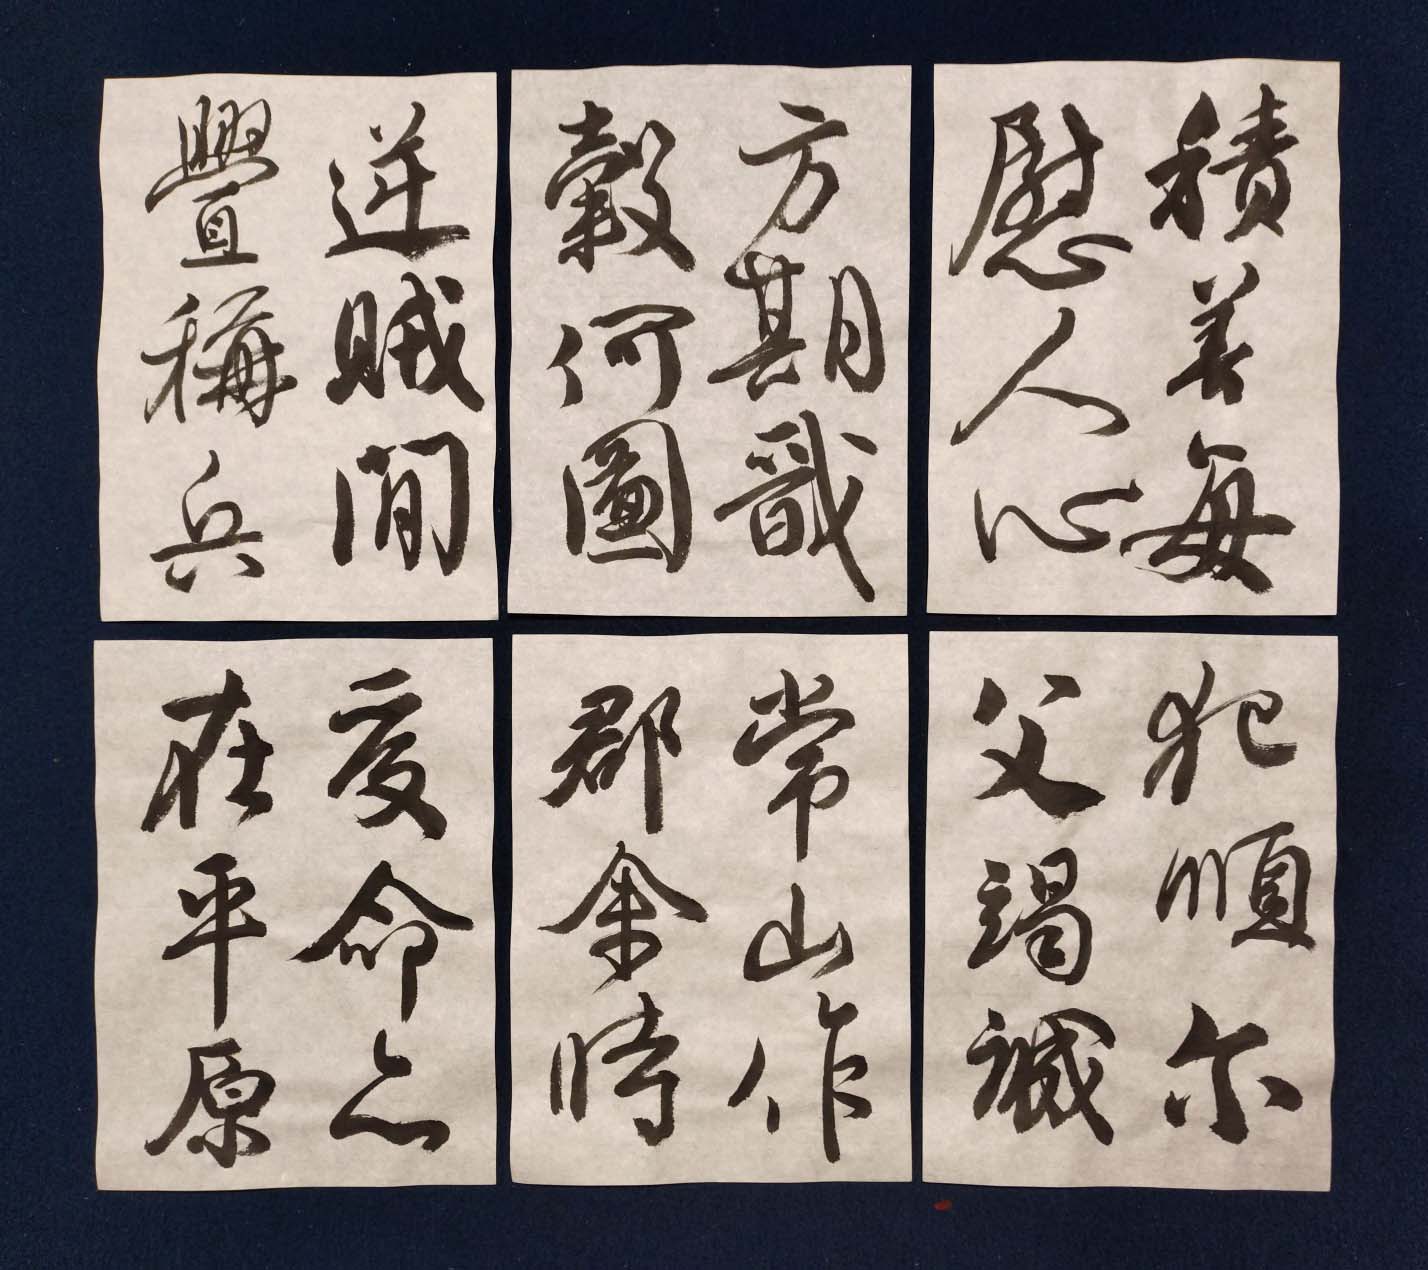 積善每
慰人心
方期戩
穀何圖
逆賊閒
釁稱兵
犯順尔
父竭誠
常山作
郡余時
受命亦
在平原